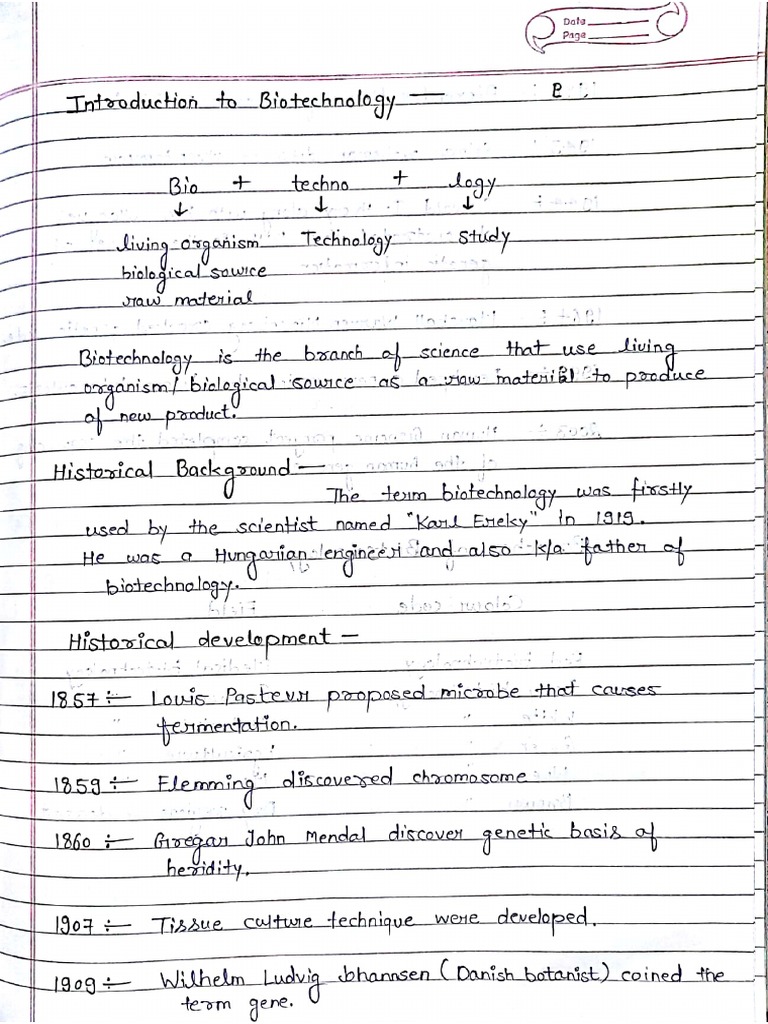 Date
Page
Introduction to Biotechnology —
B
Bio + techno + logy
↓ ↓ ↓
living organism Technology Study
biological source
raw material
Biotechnology is the branch of science that use living
organism/ biological source as a raw material to produce
of new product.
Historical Background —
The term biotechnology was firstly
used by the scientist named "Karl Ereky" in 1919.
He was a Hungarian engineer and also k/a father of
biotechnology.
Historical development —
1857 :— Louis Pasteur proposed microbe that causes
fermentation.
1859 :— Flemming discovered chromosome
1860 :— Gregar John Mendal discover genetic basis of
heridity.
1907 :— Tissue culture technique were developed.
1909 :— Wilhelm Ludvig Johannsen (Danish botanist) coined the
term gene.